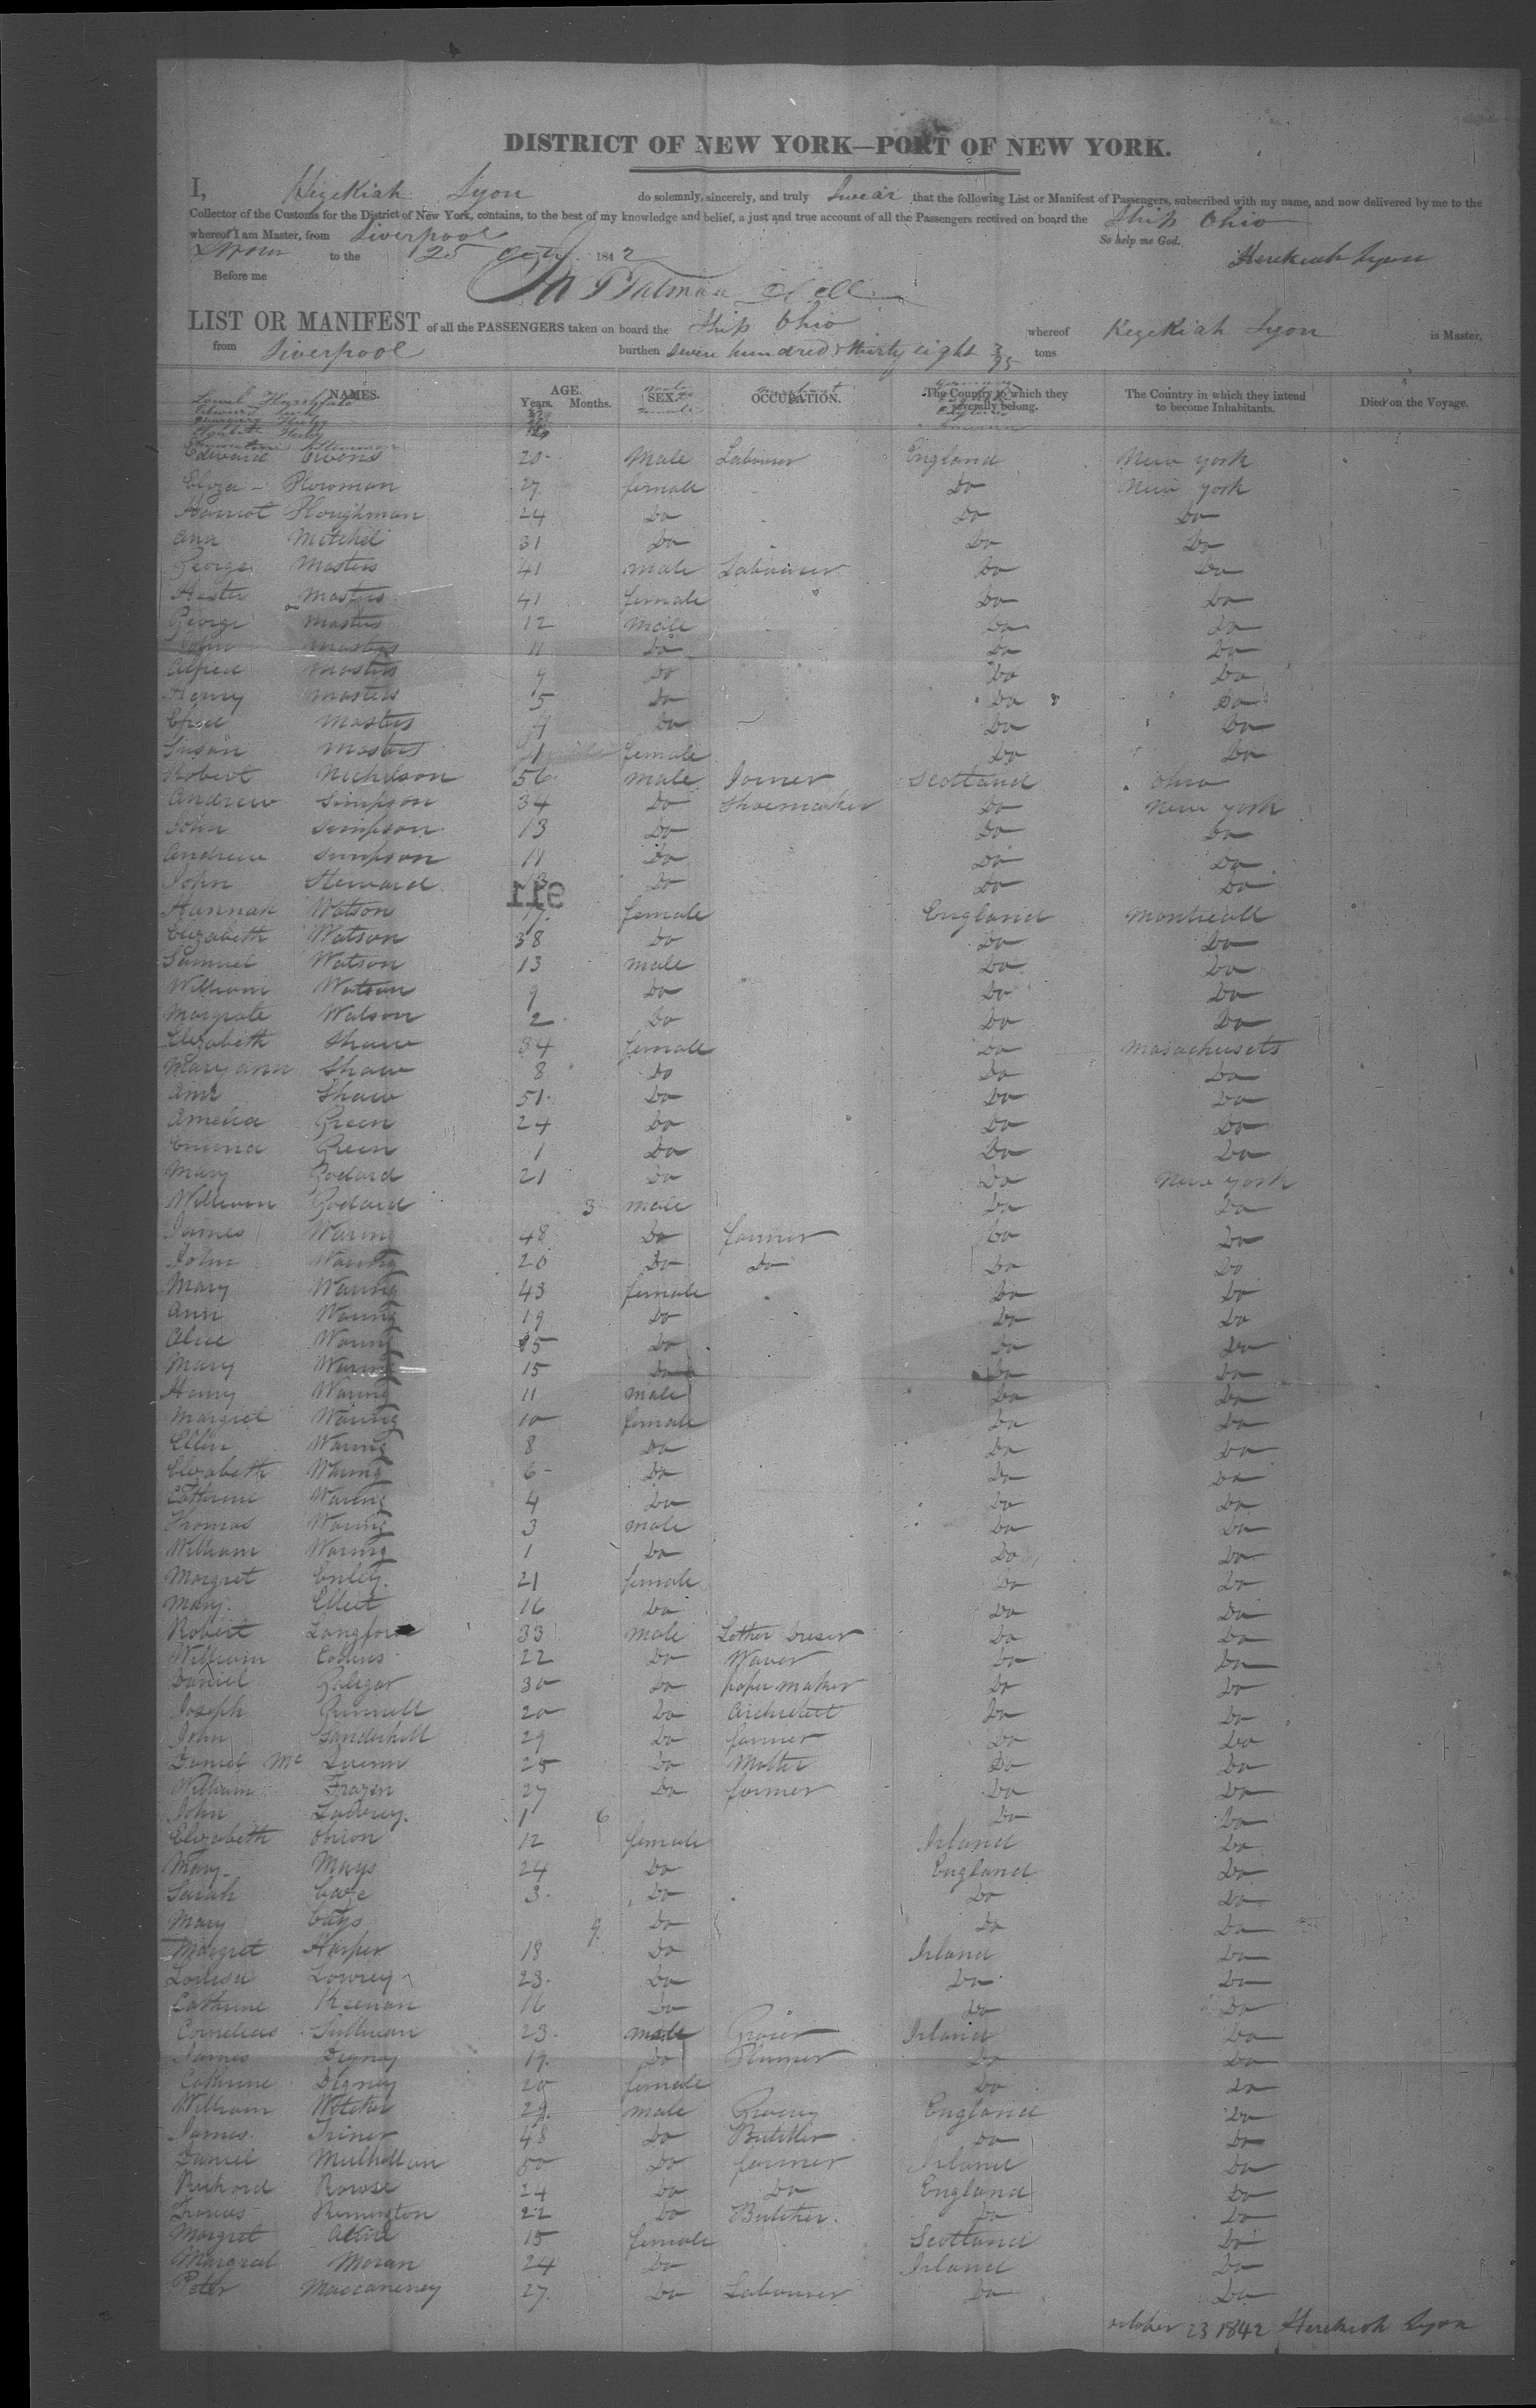 DISTRICT OF NEW YORK—PORT OF NEW YORK.
I, Hezekiah Lyon do solemnly, sincerely, and truly swear that the following List or Manifest of Passengers, subscribed with my name, and now delivered by me to the
Collector of the Customs for the District of New York, contains, to the best of my knowledge and belief, a just and true account of all the Passengers received on board the Ship Ohio
whereof I am Master, from Liverpool So help me God.
Sworn to the 25 1842 Hezekiah Lyon
Before me
LIST OR MANIFEST of all the PASSENGERS taken on board the Ship Ohio whereof Hezekiah Lyon is Master,
from Liverpool burthen seven hundred & thirty eight 3/95 tons
NAMES. AGE. Years. Months. SEX. OCCUPATION. The Country to which they severally belong. The Country in which they intend to become Inhabitants. Died on the Voyage.
Edward Owens 20 Male Labourer England New York
Eliza Plowman 27 female Do New York
Harriot Ploughman 24 Do Do Do
Ann Mitchel 31 Do Do Do
George Masters 41 male Labourer Do Do
Hester Masters 41 female Do Do
George Masters 12 Male Do Do
John Masters 11 Do Do Do
Alfred Masters 9 Do Do Do
Henry Masters 5 Do Do Do
Masters 4 Do Do Do
Susan Masters 1 female Do Do
Robert Nichelson 56 male Joiner Scotland Ohio
Andrew Simpson 34 Do Shoemaker Do New York
John Simpson 13 Do Do Do
Andrew Simpson 11 Do Do Do
John Steward Do Do Do
116
Hannah Watson 17 female England Montreall
Elizabeth Watson 38 Do Do Do
Samuel Watson 13 male Do Do
William Watson 9 Do Do Do
Margrate Watson 2 Do Do Do
Elizabeth Shaw 34 female Do Masachusets
Mary ann Shaw 8 Do Do Do
Ann Shaw 51 Do Do Do
Amelia Green 24 Do Do Do
Emma Green 1 Do Do Do
Mary Godard 21 Do Do New York
William Godard 3 male Do Do
James Waring 48 Do farmer Do Do
John Waring 20 Do Do Do Do
Mary Waring 43 female Do Do
Ann Waring 19 Do Do Do
Alice Waring 15 Do Do Do
Mary Waring 15 Do Do Do
Henry Waring 11 male Do Do
Margret Waring 10 female Do Do
Ellin Waring 8 Do Do Do
Elizabeth Waring 6 Do Do Do
Cathrine Waring 4 Do Do Do
Thomas Waring 3 male Do Do
William Waring 1 Do Do Do
Morgret 21 female Do Do
Mary 16 Do Do Do
Robert Langford 33 male Lether Dreser Do Do
William Collins 22 Do Waver Do Do
Daniel Galigar 30 Do paper maker Do Do
Joseph Gunnell 20 Do Architect Do Do
John 29 Do farmer Do Do
Daniel Mc Quinn 25 Do Do Do
William Frazer 27 Do farmer Do Do
John 1 6 Do Do
Elizabeth 12 female Irland Do
Mary Mays 24 Do England Do
Sarah 3 Do Do Do
Mary 9 Do Do Do
Margret Harper 18 Do Irland Do
Louisa Lowrey 23 Do Do Do
Cathrine Keenan 16 Do Do Do
Cornelius Sullivan 23 male Irland Do
James Digney 19 Do Do Do
Cathrine Digney 20 female Do Do
William 29 male England Do
James 48 Do Butcher Do Do
Daniel Mulhollan 50 Do farmer Irland Do
Richard 24 Do Do England Do
Remington 22 Do Butcher Do Do
Margret 15 female Scotland Do
Margrat Moran 24 Do Irland Do
Peter Maccaneney 27 Do Labourer Do Do
october 23 1842 Hezekiah Lyon